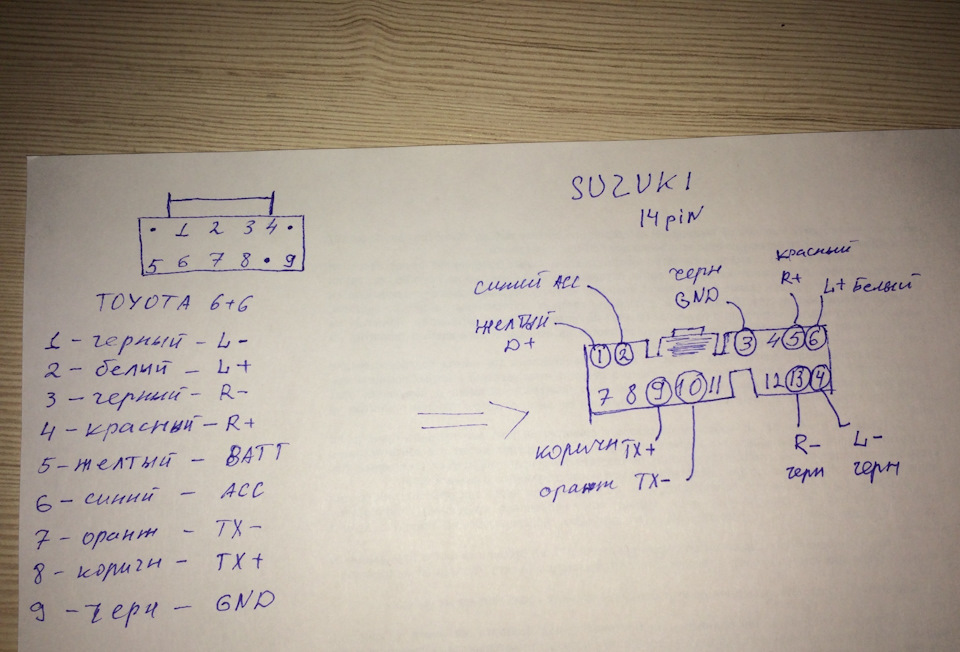 1 2 3 4
5 6 7 8 9
TOYOTA 6+6
1 - черный - L-
2 - белый - L+
3 - черный - R-
4 - красный - R+
5 - желтый - BATT
6 - синий - ACC
7 - оранж - TX-
8 - коричн - TX+
9 - черн - GND
SUZUKI
14 pin
синий ACC
желтый
D+
черн
GND
красный
R+
L+ белый
1 2 3 4 5 6
7 8 9 10 11 12 13 4
коричн TX+
оранж TX-
R-
черн
L-
черн